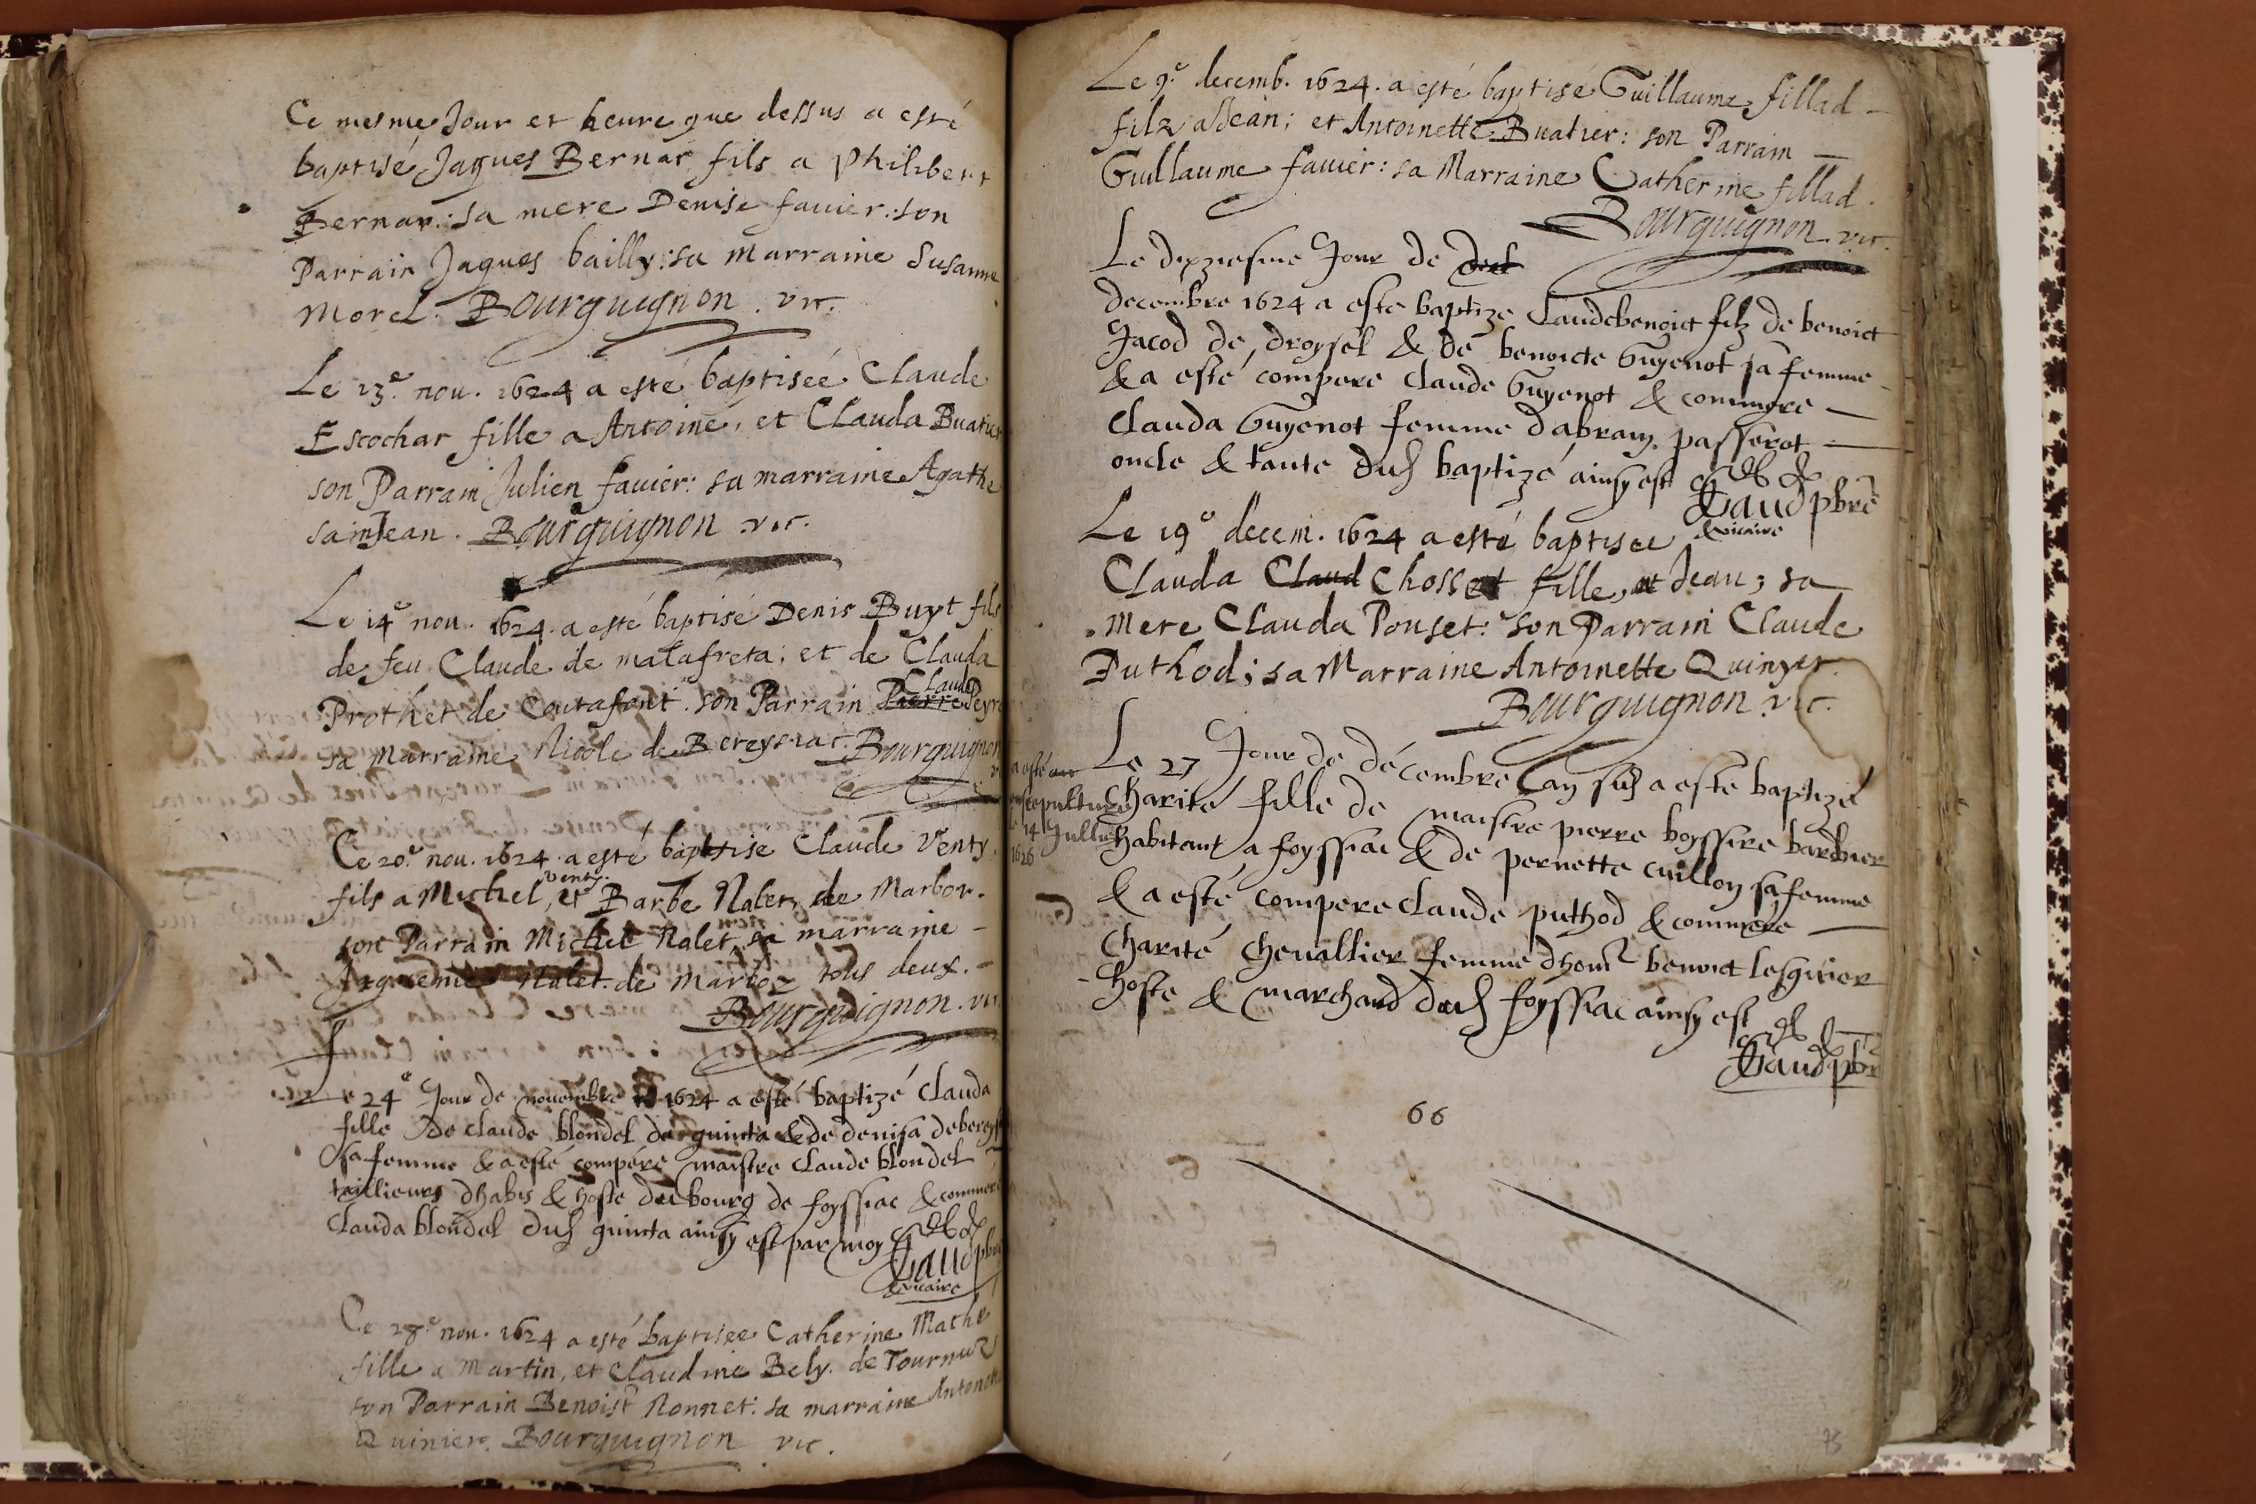 Ce mesme Jour et heure que dessus a esté
baptisé Jaques Bernar fils a Philibert
Bernar: sa mere Denise favier: son
Parrain Jaques bailly: sa marraine Susanne
Morel. Bourguignon. vic.
Le 13e. nov. 1624 a esté baptiséé Claude
Escochar fille a Antoine, et Clauda Buatier
son Parrain Julien favier: sa marraine Agathe
sainJean. Bourguignon vic.
Le 14e nov. 1624. a esté baptisé Denis Buyt fils
de feu Claude de malafreta; et de Clauda
Claude
Prothet de Coutafont. son Parrain Pierre Peyre
sa Marraine Nicole de Bereysiac. Bourguignon
v
Ce 20e. nov. 1624. a esté baptise Claude Venty.
venty.
fils a Michel, et Barbe Nalet, de Marbor.
son Parrain Michel Nalet, sa marraine
Nalet. de Marboz tous deux.
Bourguignon. vic
Le 24e Jour de novembre 1624 a esté baptizé Clauda
fille de claude blondel de quinta & de denisa debereys
sa femme & a esté compere maistre Claude blondel
taillieurs dhabis & hoste du bourg de foyssiac & commere
Clauda blondel dud quinta ainsy est par moy
Gaud pbre
& vicaire
Ce 28e. nov. 1624 a esté baptisee Catherine Mathe
fille a Martin, et Claudine Bely. de Tournus
son Parrain Benoist Nonnet: sa marraine Antoinette
Quinier. Bourguignon vic.
Le 9e. decemb. 1624. a esté baptisé Guillaume fillad
filz a Jean; et Antoinette Buatier: son Parrain
Guillaume favier: sa Marraine Catherine fillad.
Bourguignon. vic.
Le dixziesme Jour de
decembre 1624 a este baptize Claudebenoict filz de benoict
Jacod de droysel & de benoicte Guyenot sa femme
& a esté compere claude Guyenot & commere
Clauda Guyenot femme dabram passerot
oncle & tante dud baptizé ainsy est
Gaud pbre
& vicaire
Le 19e decem. 1624 a esté baptisee
Clauda Claud Chosset fille, a Jean; sa
mere Clauda Ponset: son Parrain Claude
Puthod; sa Marraine Antoinette Quinyer
Bourguignon vic.
a esté
sepulture
le 14 Jullie
1626
Le 27 Jour de décembre lan sud a este baptizé
Charité fille de maistre pierre boyssire barbier
habitant a foyssiac & de pernette cuillon sa femme
& a esté compere claude puthod & commere
Charité Chevallier femme dhonr benoict lesguier
hoste & marchand dud foyssiac ainsy est
Gaud pbr
66
75